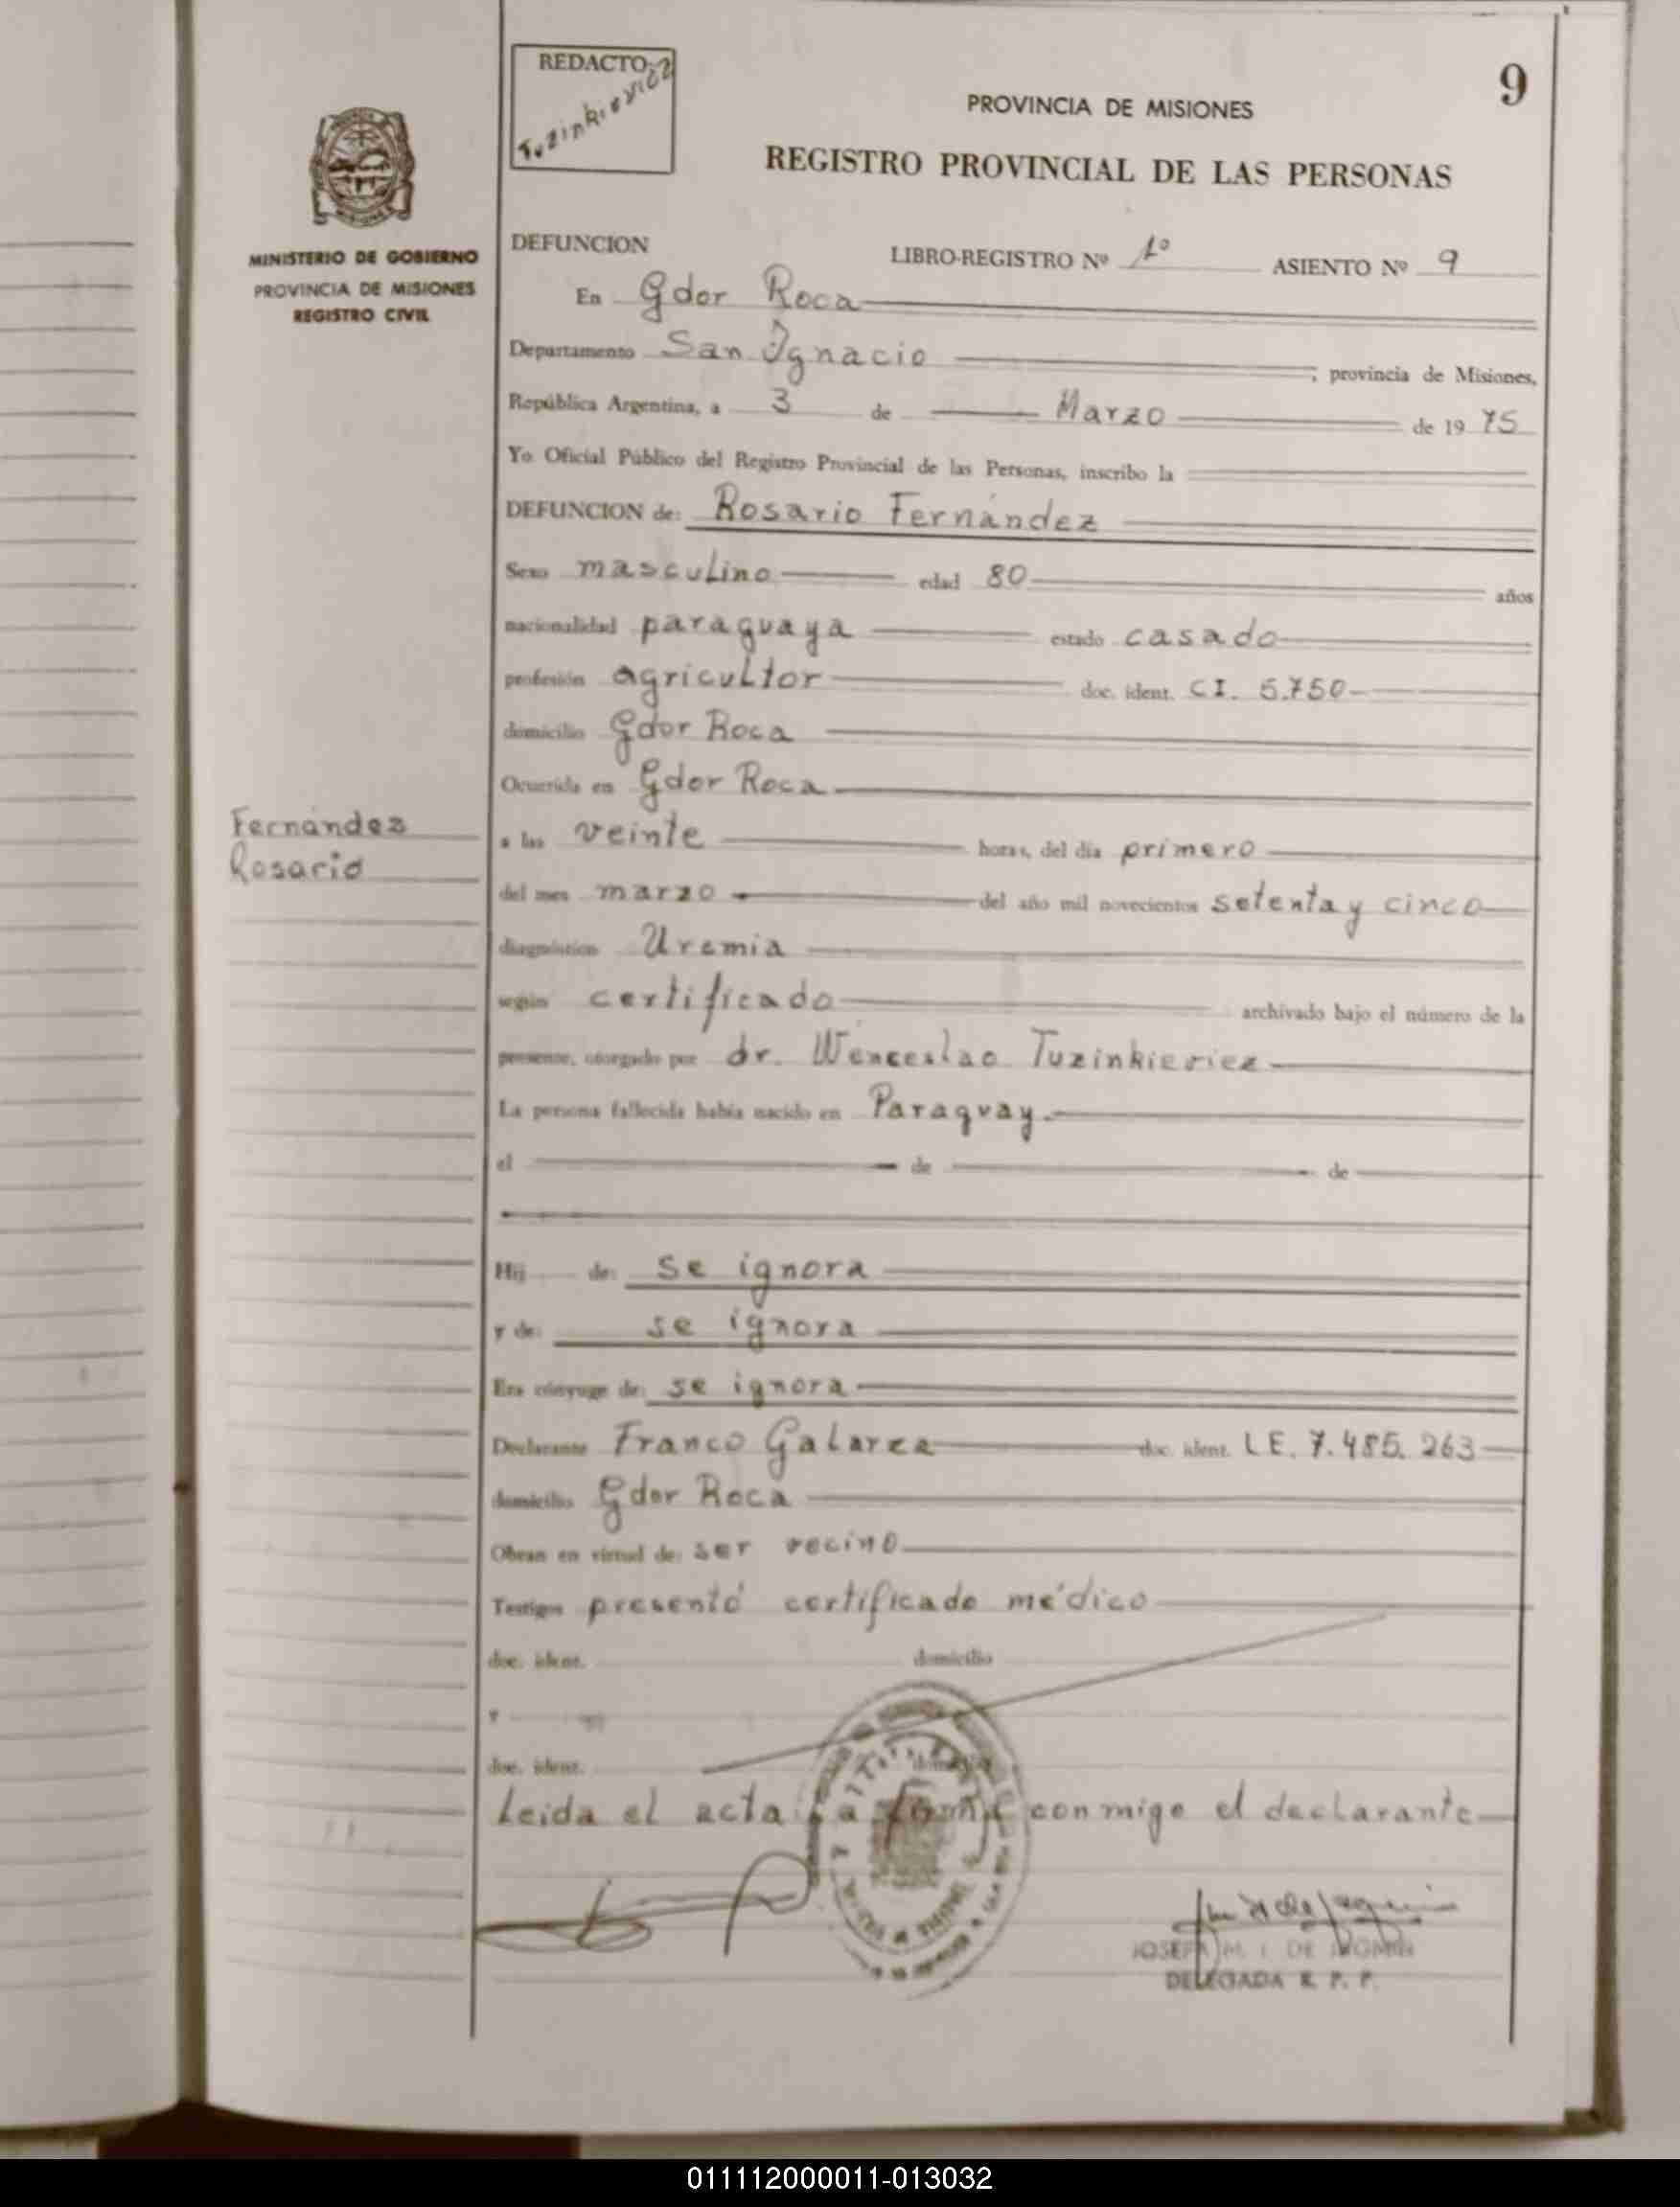 REDACTO
Tuzinkievicz
9
PROVINCIA DE MISIONES
REGISTRO PROVINCIAL DE LAS PERSONAS
MINISTERIO DE GOBIERNO
PROVINCIA DE MISIONES
REGISTRO CIVIL
DEFUNCION LIBRO-REGISTRO Nº 1º ASIENTO Nº 9
En Gdor Roca
Departamento San Ignacio ; provincia de Misiones,
República Argentina, a 3 de Marzo de 1975
Yo Oficial Público del Registro Provincial de las Personas, inscribo la
DEFUNCION de: Rosario Fernández
Sexo masculino edad 80 años
nacionalidad paraguaya estado casado
profesión agricultor doc. ident. CI. 5.750
domicilio Gdor Roca
Ocurrida en Gdor Roca
Fernández
Rosario
a las veinte horas, del día primero
del mes marzo del año mil novecientos setenta y cinco
diagnóstico Uremia
según certificado archivado bajo el número de la
presente, otorgado por dr. Wenceslao Tuzinkieviez
La persona fallecida había nacido en Paraguay.
el de de
Hij de: se ignora
y de: se ignora
Era cónyuge de: se ignora
Declarante Franco Galarza doc. ident. L E. 7.485.263
domicilio Gdor Roca
Obran en virtud de: ser vecino
Testigos presentó certificado médico
doc. ident. domicilio
y
doc. ident.
Leida el acta la conmigo el declarante
JOSEFA M. I. DE
DELEGADA R. P. P.
011112000011-013032